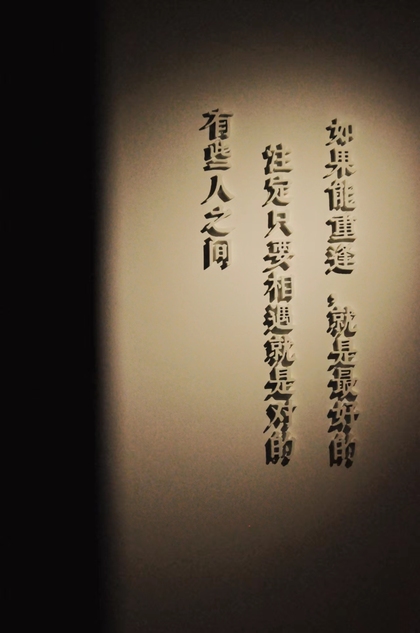 有些人之间
注定只要相遇就是对的
如果能重逢，就是最好的